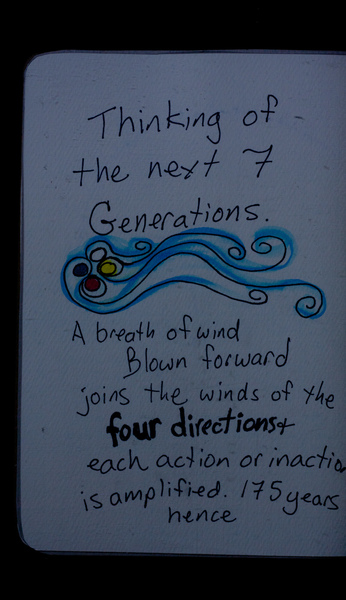 Thinking of
the next 7
Generations.
A breath of wind
Blown forward
joins the winds of the
four directions+
each action or inactio
is amplified. 175 years
hence